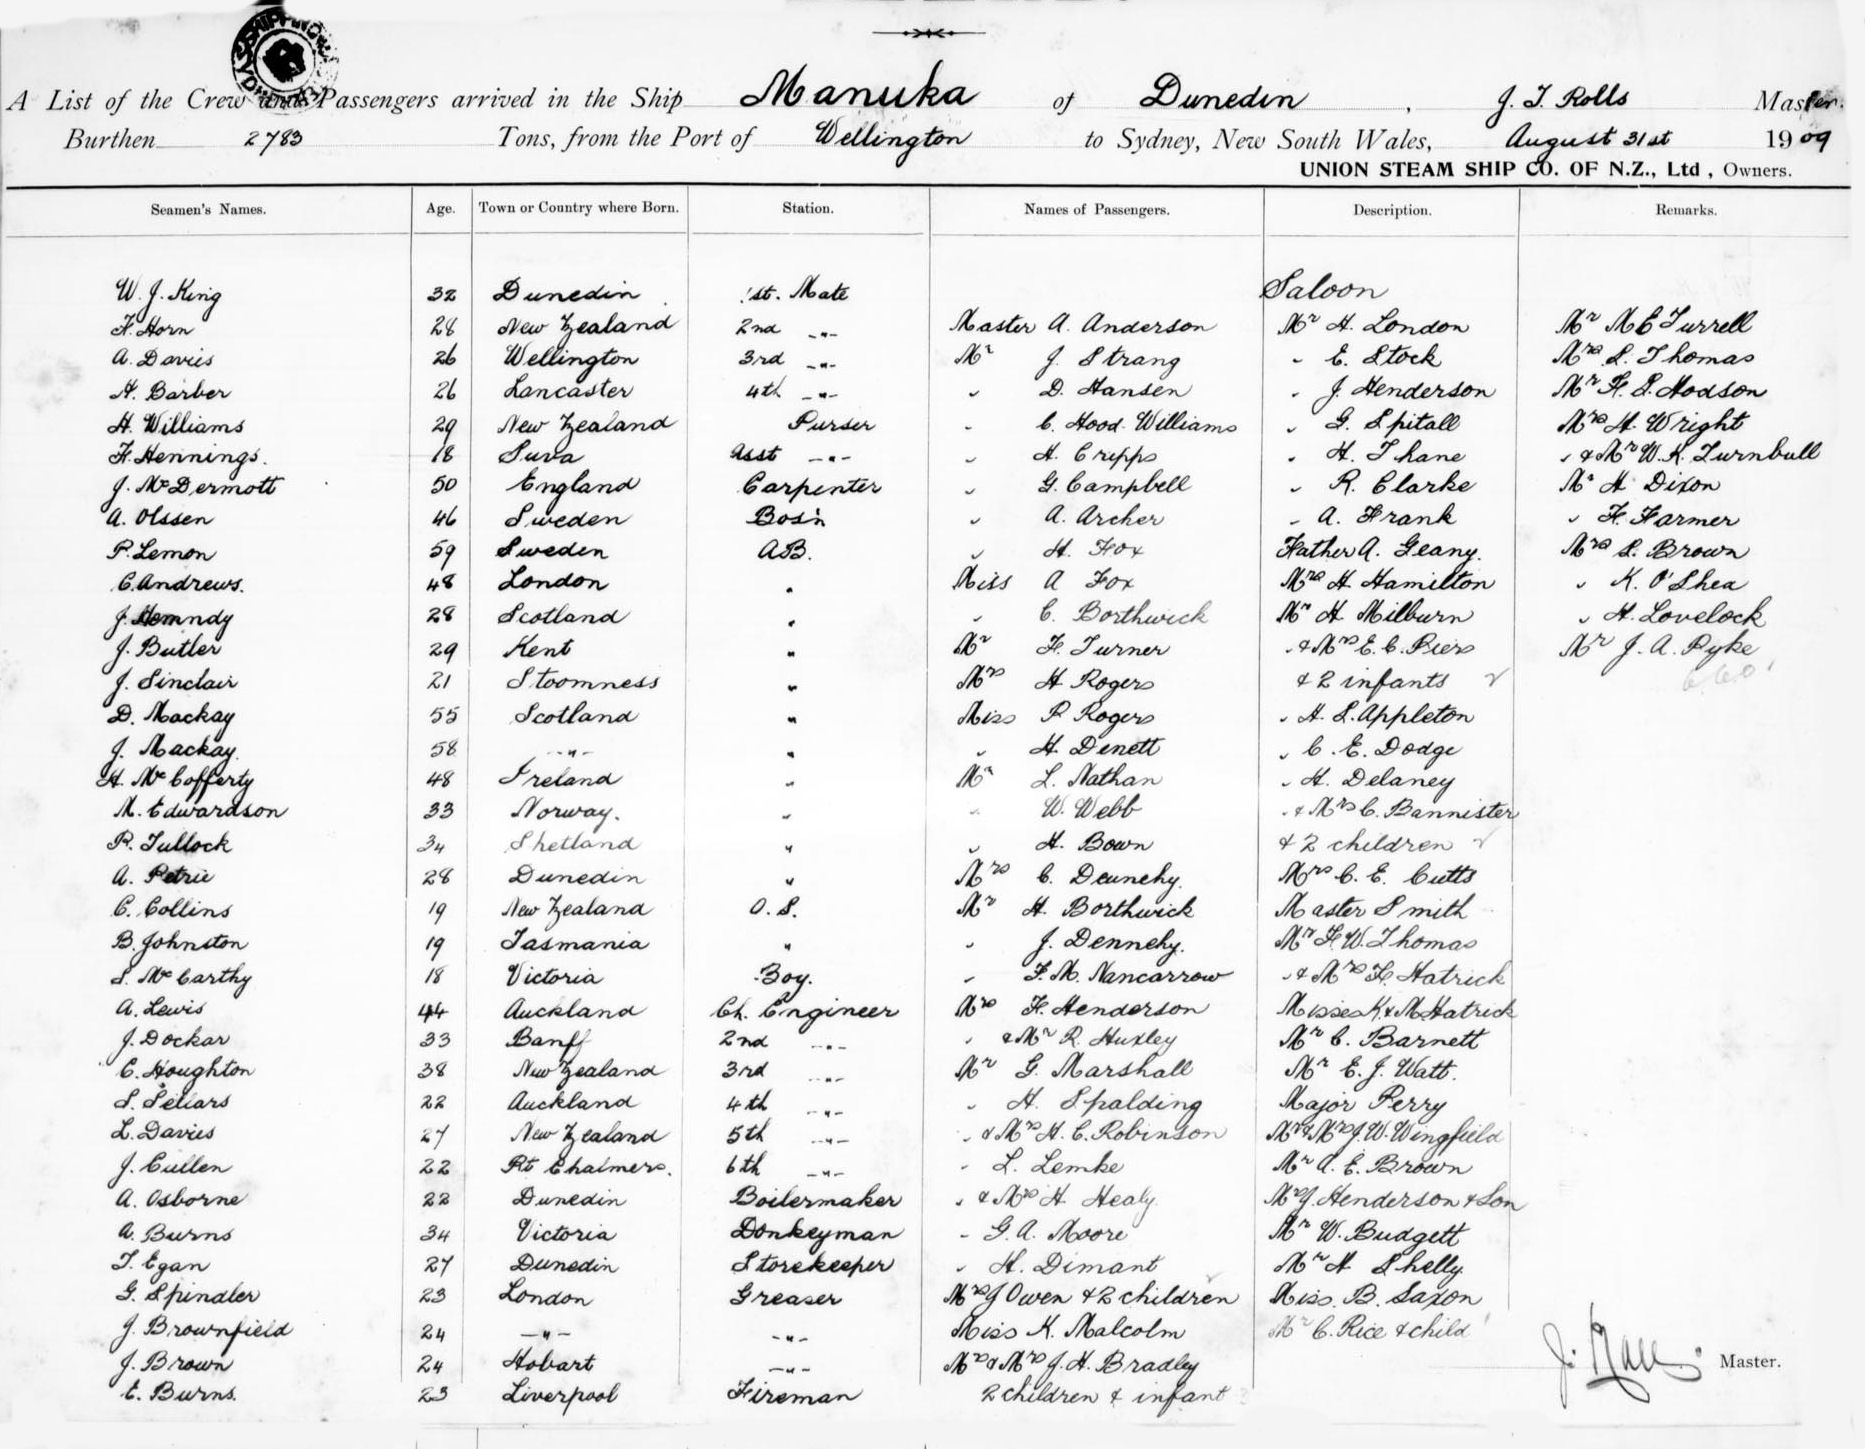 A List of the Crew and Passengers arrived in the Ship Manuka of Dunedin, J. T. Rolls Master.
Burthen 2783 Tons, from the Port of Wellington to Sydney, New South Wales, August 31st 1909
UNION STEAM SHIP CO. OF N.Z., Ltd, Owners.
Seamen's Names. Age. Town or Country where Born. Station. Names of Passengers. Description. Remarks.
W. J. King 32 Dunedin 1st. Mate Saloon
F. Horn 28 New Zealand 2nd -"- Master A. Anderson Mr H. London Mr M E Turrell
A. Davies 26 Wellington 3rd -"- Mr J. Strang " E. Stock Mrs S. Thomas
H. Barber 26 Lancaster 4th -"- " D. Hansen " J. Henderson Mr F. S. Hodson
H. Williams 29 New Zealand Purser " C. Hood Williams " G. Spitall Mrs H. Wright
F. Hennings. 18 Suva Asst -"- " H. Cripps " H. Thane " & Mrs W. K. Turnbull
J. McDermott 50 England Carpenter " G. Campbell " R. Clarke Mr H Dixon
A. Olssen 46 Sweden Bos'n " A. Archer " A. Frank " F. Farmer
P. Lemon 59 Sweden A.B. " H. Fox Father A. Geany. Mrs S. Brown
C. Andrews. 48 London " Miss A Fox Mrs H. Hamilton " K. O'Shea
J. 28 Scotland " " C. Borthwick Mr H Milburn " H. Lovelock
J. Butler 29 Kent " Mr F. Turner " & Mrs E. C. Piers Mr J. A. Pyke
J. Sinclair 21 Stoomness " Mrs H Rogers & 2 infants
D. Mackay 55 Scotland " Miss P Rogers " H. S. Appleton
J. Mackay. 58 -"- " " H. Denett " C. E. Dodge
H. McCofferty 48 Ireland " Mr L. Nathan " H. Delaney
M. Edwardson 33 Norway. " " W. Webb " & Mrs C. Bannister
R. Tullock 34 Shetland " " H. Bown & 2 children
A. Petrie 28 Dunedin " Mrs C. Deunehy. Mrs C. E. Cutts
C. Collins 19 New Zealand O. S. Mr H. Borthwick Master Smith
B. Johnston 19 Tasmania " " J. Dennehy. Mr F. W. Thomas
S. McCarthy 18 Victoria Boy. " F. M. Nancarrow " & Mrs F. Hatrick
A. Lewis 44 Auckland Ch. Engineer Mrs F. Henderson Misses K & M Hatrick
J. Dockar 33 Banff 2nd -"- " & Mr R. Huxley Mr C. Barnett
C. Houghton 38 New Zealand 3rd -"- Mr G. Marshall Mr E. J. Watt.
S. Sellars 22 Auckland 4th -"- " H. Spalding Major Perry
L. Davies 27 New Zealand 5th -"- " & Mrs H. C. Robinson Mr & Mrs J. W. Wingfield
J. Cullen 22 Pt Chalmers. 6th -"- " L. Lemke Mr A. E. Brown
A. Osborne 22 Dunedin Boilermaker " & Mrs H. Healy Mrs J. Henderson & Son
A. Burns 34 Victoria Donkeyman " G. A. Moore Mr W. Budgett
T. Egan 27 Dunedin Storekeeper " H. Dimant Mr H Shelly.
G. Spindler 23 London Greaser Mrs J Owen & 2 children Miss. B. Saxon
J. Brownfield 24 -"- -"- Miss K. Malcolm Mr C. Rice & child
J. Brown 24 Hobart -"- Mr & Mrs J. H. Bradley Master.
E. Burns. 23 Liverpool Fireman 2 children & infant